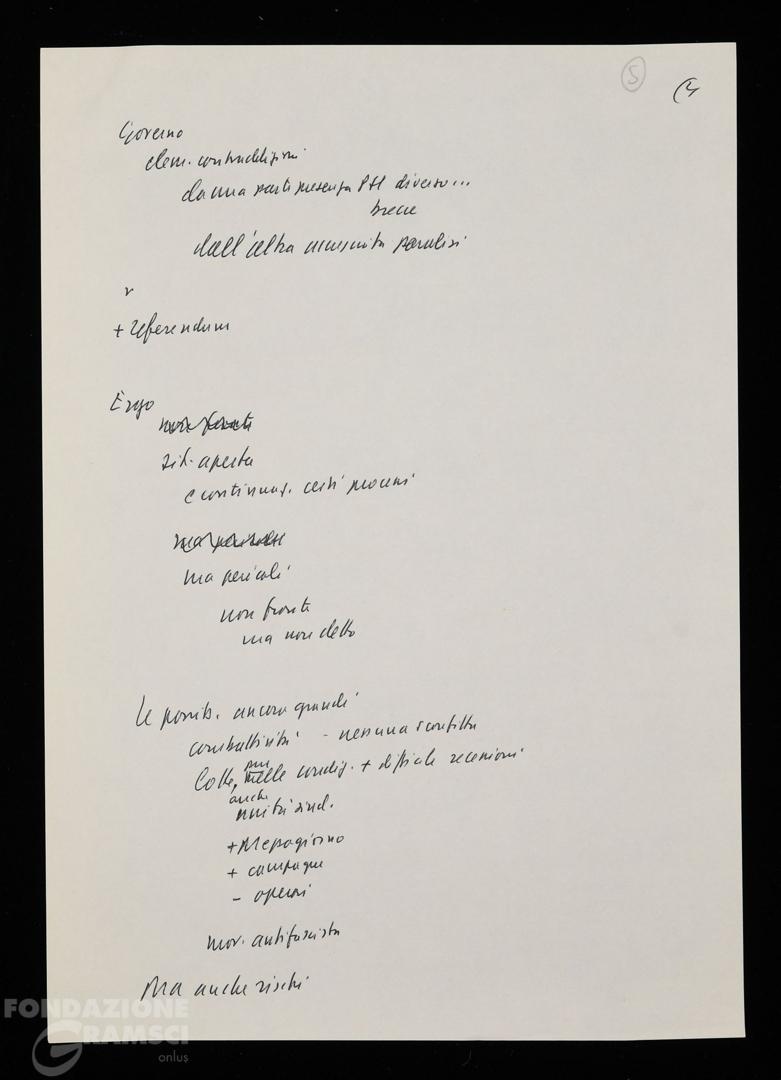 5
(4
Governo
elem. contraddizioni
da una parte presenza PSI diverso...
breve
dall'altra accresciuta paralisi
+ referendum
Ergo
non fronte
sit. aperta
e continuaz. certi processi
ma pericoli
non fronte
ma non detto
Le possib. ancora grandi
combattività - nessuna sconfitta
pur
Lotte, nelle condiz. + difficili recessioni
anche
unità sind.
+ Mezzogiorno
+ campagne
- operai
mov. antifascista
Ma anche rischi
FONDAZIONE
GRAMSCI
onlus